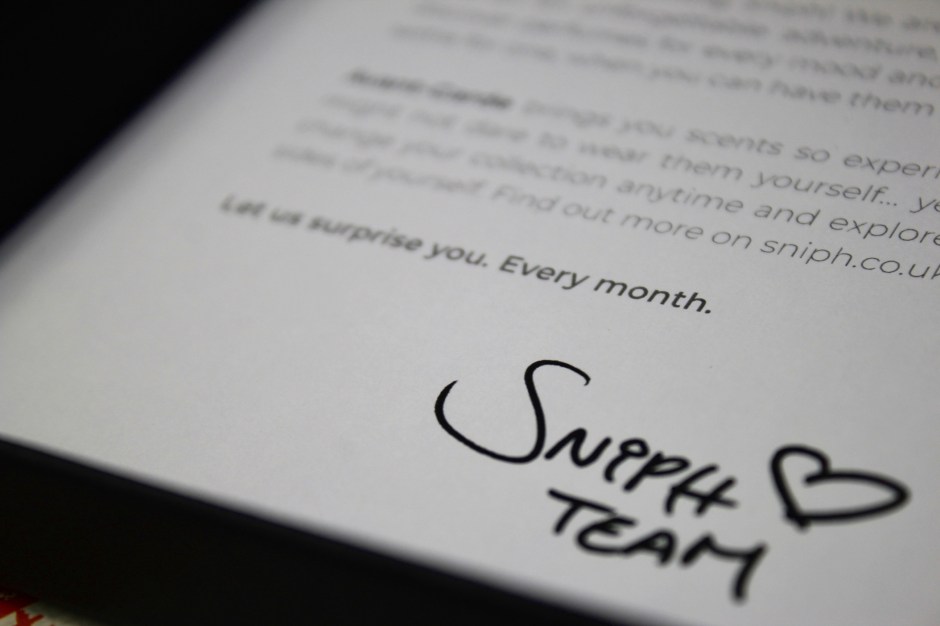 unforgettable adventure.
perfumes for every mood and
when you can have them
Avant-Garde brings you scents so experi
might not dare to wear them yourself... ye
change your collection anytime and explore
sides of yourself. Find out more on sniph.co.uk
Let us surprise you. Every month.
SNIPH
TEAM